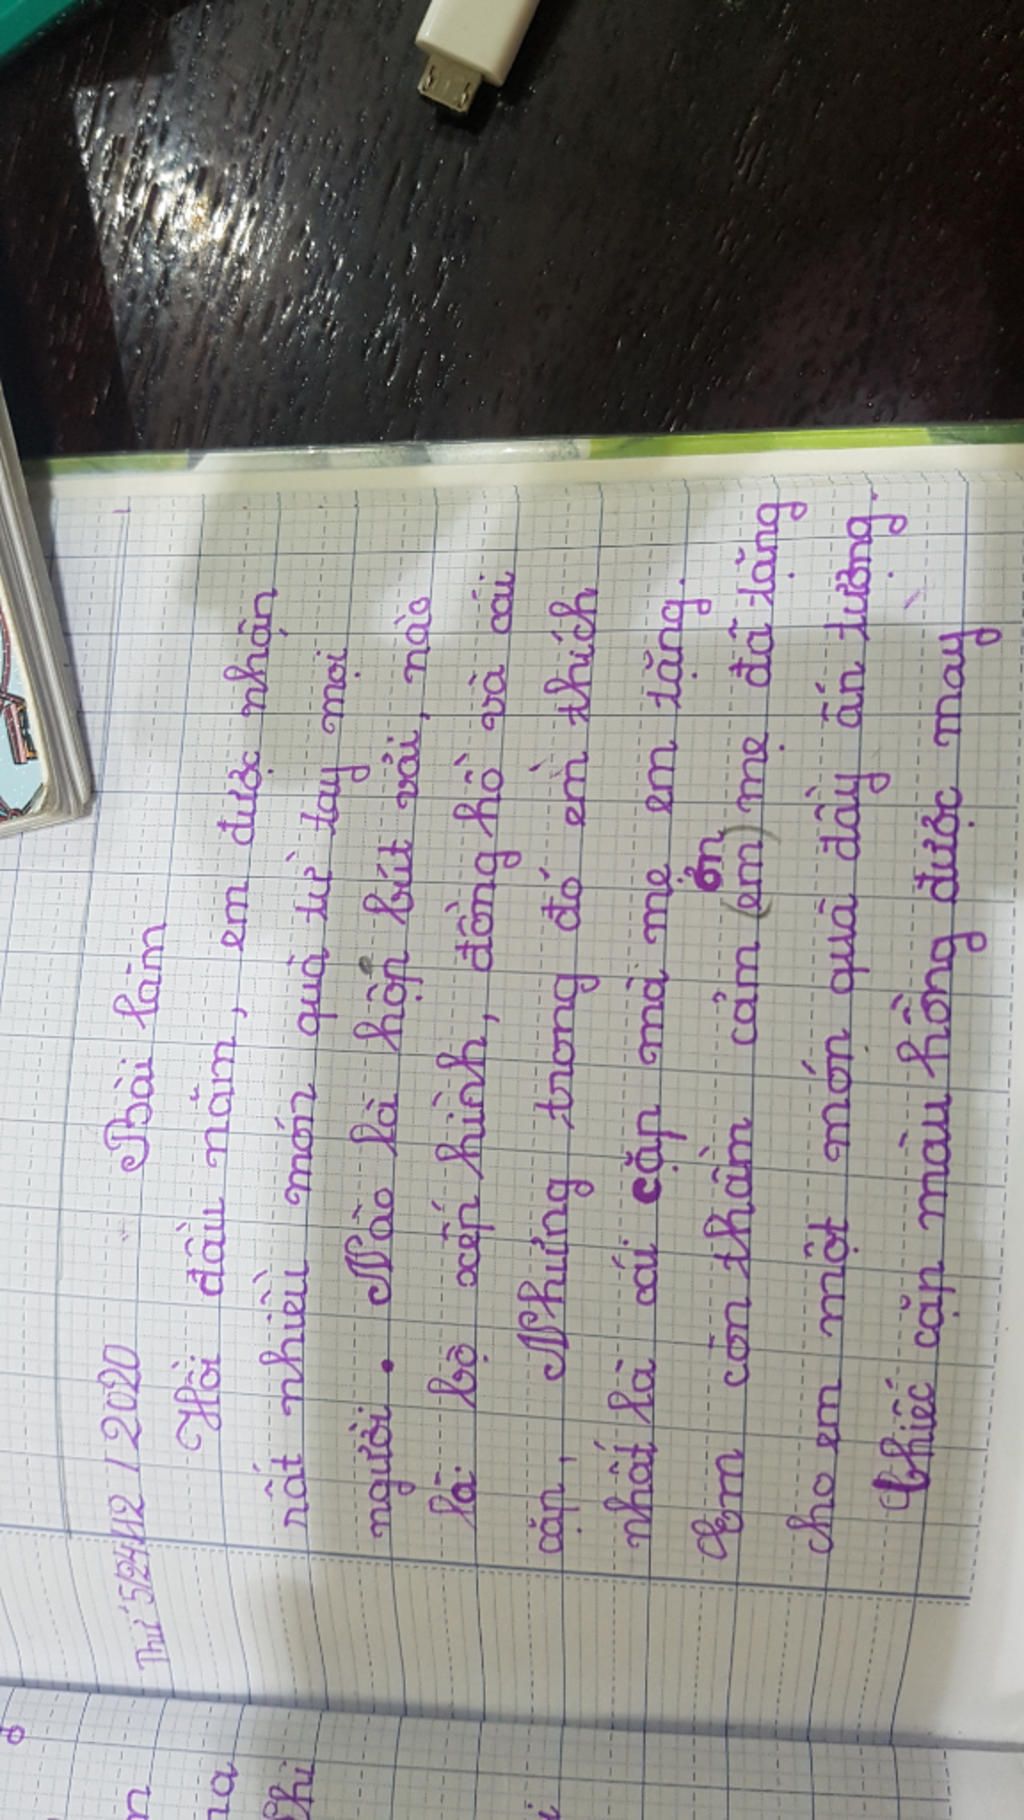 Thứ 5/24/12/2020 Bài làm
Hồi đầu năm, em được nhận
rất nhiều món quà từ tay mọi
người. Nào là hộp bút vải, nào
là bộ xếp hình, đồng hồ và cái
cặp, Nhưng trong đó em thích
nhất là cái cặp mà mẹ em tặng.
Em còn thầm cảm (em) ơn mẹ đã tặng
cho em một món quà đầy ấn tượng.
Chiếc cặp màu hồng được may